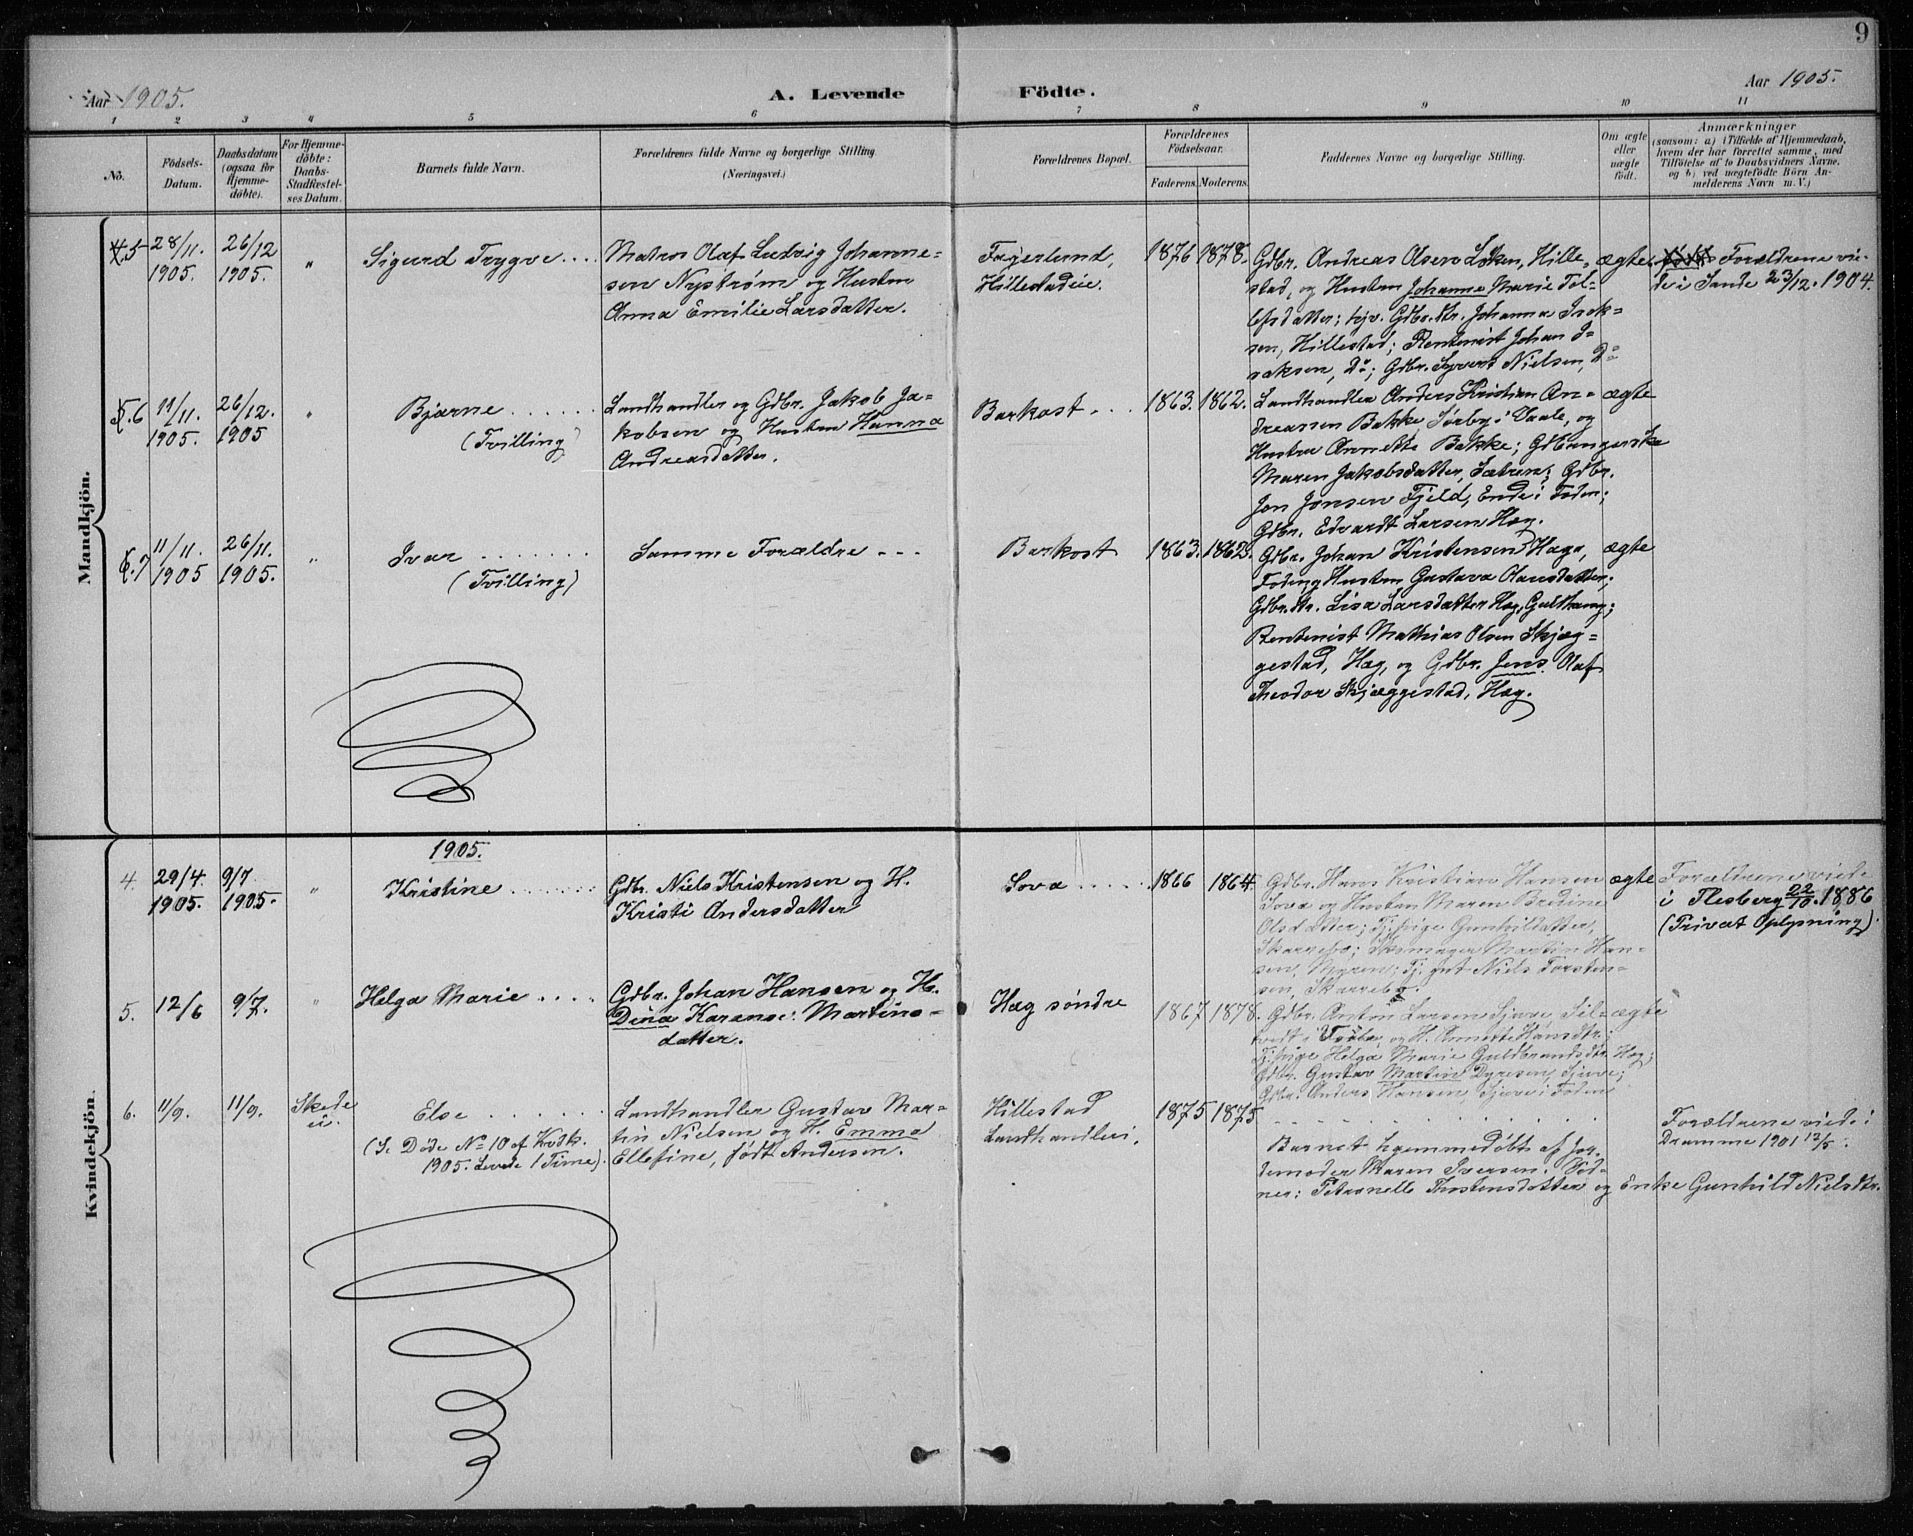 9
Aar 1905.
A. Levende
Födte.
Aar 1905.
1 2 3 4 5 6 7 8 9 10 11
No.
Födsels-
Datum.
Daabsdatum
(ogsaa for
Hjemme-
döbte).
For Hjemme-
döbte:
Daabs-
Stadfæstel-
ses Datum.
Barnets fulde Navn.
Forældrenes fulde Navne og borgerlige Stilling
(Næringsvei.)
Forældrenes Bopæl.
Forældrenes
Födselsaar.
Faderens. Moderens.
Faddernes Navne og borgerlige Stilling.
Om ægte
eller
uægte
födt.
Anmærkninger
(saasom: a) i Tilfælde af Hjemmedaab,
hvem der har forrettet samme, med
Tilföielse af to Daabsvidners Navne,
og b) ved uægtefödte Börn An-
melderens Navn m. V.)
Mandkjön.
5
28/11.
1905.
26/12
1905.
"
Sigurd Trygve . . . .
Matros Olaf Ludvig Johanne-
sen Nystrøm og Hustru
Anna Emilie Larsdatter.
Fagerlund,
Hillestadeie.
1876 1878.
Gdbr. Andreas Olsen Løken, Hille-
stad, og Hustru Johanne Marie Tol-
lefsdatter; Gdbr. dtr. Johanna Isak-
sen, Hillestad; Rentenist Johan I-
saksen, Do; Gdbr. Syvert Nielsen, Do
ægte
Forældrene vie-
de i Sande 23/12. 1904.
6
11/11.
1905.
26/12.
1905
"
Bjarne . . . . . .
(Tvilling)
Landhandler og Gdbr. Jakob Ja-
kobsen og Hustru Hanna
Andreasdatter.
Barkost . . .
1863. 1862.
Landhandler Anders Kristian An-
dreassen Bakke, Sørby i Vaale, og
Hustru Annette Bakke; Gdbrungerske
Maren Jakobsdatter, Sætren; Gdbr.
Jon Jonsen Fjeld, Ende i Foden;
Gdbr. Edvardt Larsen Hæg.
ægte
7
11/11.
1905
26/11.
1905.
"
Ivar . . . . . . .
(Tvilling)
Samme Forældre . . .
Barkost
1863. 1862.
Gdbr. Johan Kristensen Haga,
Hustru Gustava Olausdatter;
Gdbr. dtr. Lisa Larsdatter Hæg,
Rentenist Mathias Olsen Skjæg-
gestad, Hæg, og Gdbr. Jens Olaf
Theodor Skjæggestad, Hæg.
ægte
Kvindekjön.
1905.
4.
29/4.
1905.
9/7
1905.
"
Kristine . . . . . . .
Gdbr. Niels Kristensen og H.
Kristi Andersdatter
Sova . . . . .
1866 1864.
Gdbr. Hans Kristian Hansen
Sova og Hustru Maren Bredine
Olsdatter; Tj. pige Gunhildatter,
Skarrebø; Skomager Martin Han-
sen, Myren; Tj. gut Niels Torsten-
sen, Skarrebø.
ægte
Forældrene viede
i Flesberg 22/10. 1886
(Privat Oplysning).
5.
12/6
9/7.
"
Helga Marie . . . .
Gdbr. Johan Hansen og H.
Dina Karense Martins-
datter.
Hæg søndre
1867 1878.
Gdbr. Anton Larsen
og H. Annette Hansdtr.;
Tj. pige Helga Marie Guldbrandsdtr. Hæg;
Gdbr. Gustav Martin Dyresen, Sjue;
Gdbr. Anders Hansen, Sjue i Foden
ægte
6.
11/9.
11/9.
Skede
Else . . . . . . .
(Se Døde No 10 af Kvdk.
1905. Levede 1 Time).
Landhandler Gustav Mar-
tin Nielsen og H. Emma
Ellefine, født Andersen.
Hillestad
Landhandleri.
1875 1875
Barnet hjemmedøbt af Jor-
demoder Maren Iversen. Vid-
ner: Petronelle Thorstensdatter og Enke Gunhild Nielsdtr.
Forældrene viede i
Dramme 1901 12/5.